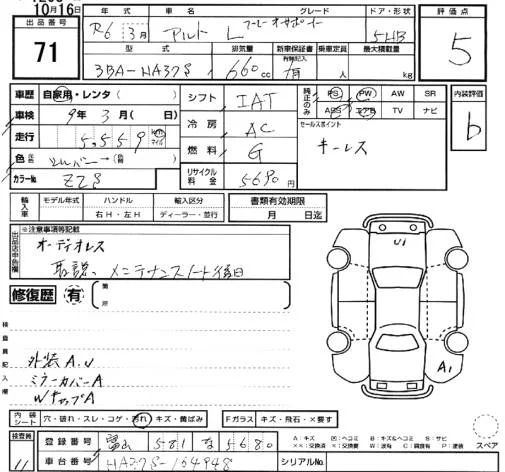 10月16日
出品番号
71
年式 車名 グレード ドア・形状 評価点
R6 3月 アルト L 5HB 5
型式 排気量 新車保証書 乗車定員 最大積載量
3BA-HA37S 660cc 有 人 kg
車歴 自家用・レンタ( )
シフト IAT
純正のみ PS PW AW SR
ABS エアB TV ナビ
内装評価
b
車検 9年3月( 日)
冷房 AC
セールスポイント
キーレス
走行 5,559 km マイル
燃料 G
色 シルバー → (色替)
カラーNo. Z2S
リサイクル料金 5690
輸入車 モデル年式 ハンドル 輸入区分 書類有効期限
右H・左H ディーラー・並行 月 日迄
出品店申告欄
※注意事項等記載
オーディオレス
取説、メンテナンスノート後日
修復歴 有 箇所
検査員記入欄
外装A.U
ミラーカバーA
WキャップA
U1
A1
内装シート 穴・破れ・スレ・コゲ・汚れ・キズ・黄ばみ Fガラス キズ・飛石・×要す スペア
検査員
登録番号 富山 581 な 5680
A:キズ U:ヘコミ B:キズ&ヘコミ S:サビ
××:交換済 ×:要交換 W:波有 C:腐食有 P:塗装
11
車台番号 HA37S-154948 シリアルNo.